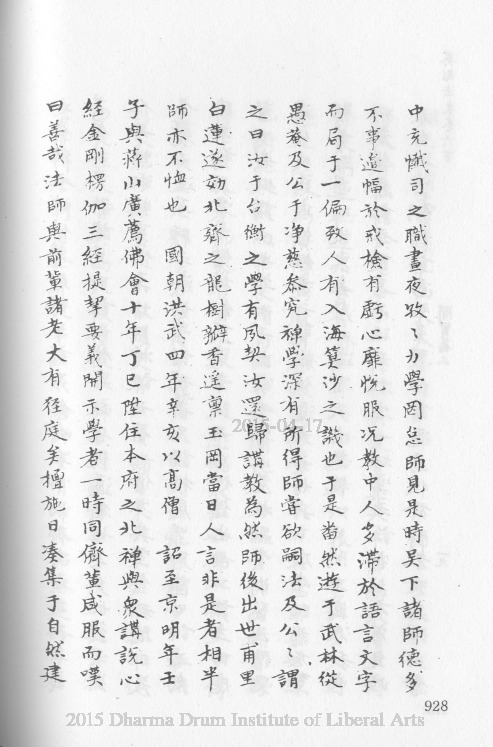 中充懺司之職晝夜孜〻力學罔怠師見是時吴下諸師德多
不事邉幅於戒檢有虧心靡悅服况教中人多滯於語言文字
而局于一偏致人有入海筭沙之譏也于是喟然遊于武林從
愚菴及公于浄慈叅究禅學深有所得師嘗欲嗣法及公〻謂
之曰汝于台衡之學有夙契汝還歸講教為然師後出世甫里
白蓮遂効北齊之龍樹瓣香遙禀玉岡當日人言非是者相半
師亦不恤也 國朝洪武四年辛亥以髙僧 詔至京明年壬
子與蔣山廣薦佛會十年丁巳陞住本府之北禅與衆講説心
經金剛楞伽三經提挈要義開示學者一時同儕輩咸服而嘆
曰善哉法師與前輩諸老大有徑庭矣檀施日凑集于自然建
2015-04-17
928
2015 Dharma Drum Institute of Liberal Arts